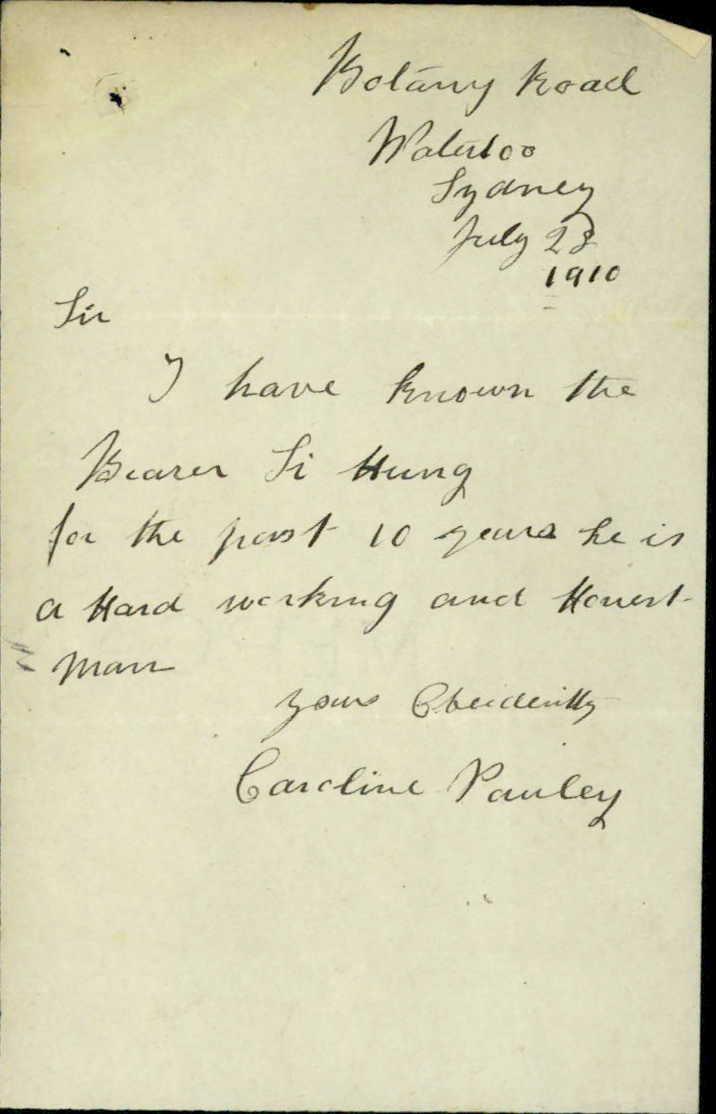 Botany Road
Waterloo
Sydney
July 28
1910
Sir
I have known the
Bearer Si Hung
for the past 10 years he is
a Hard working and Honest
man
yours Obeidently
Caroline Pauley